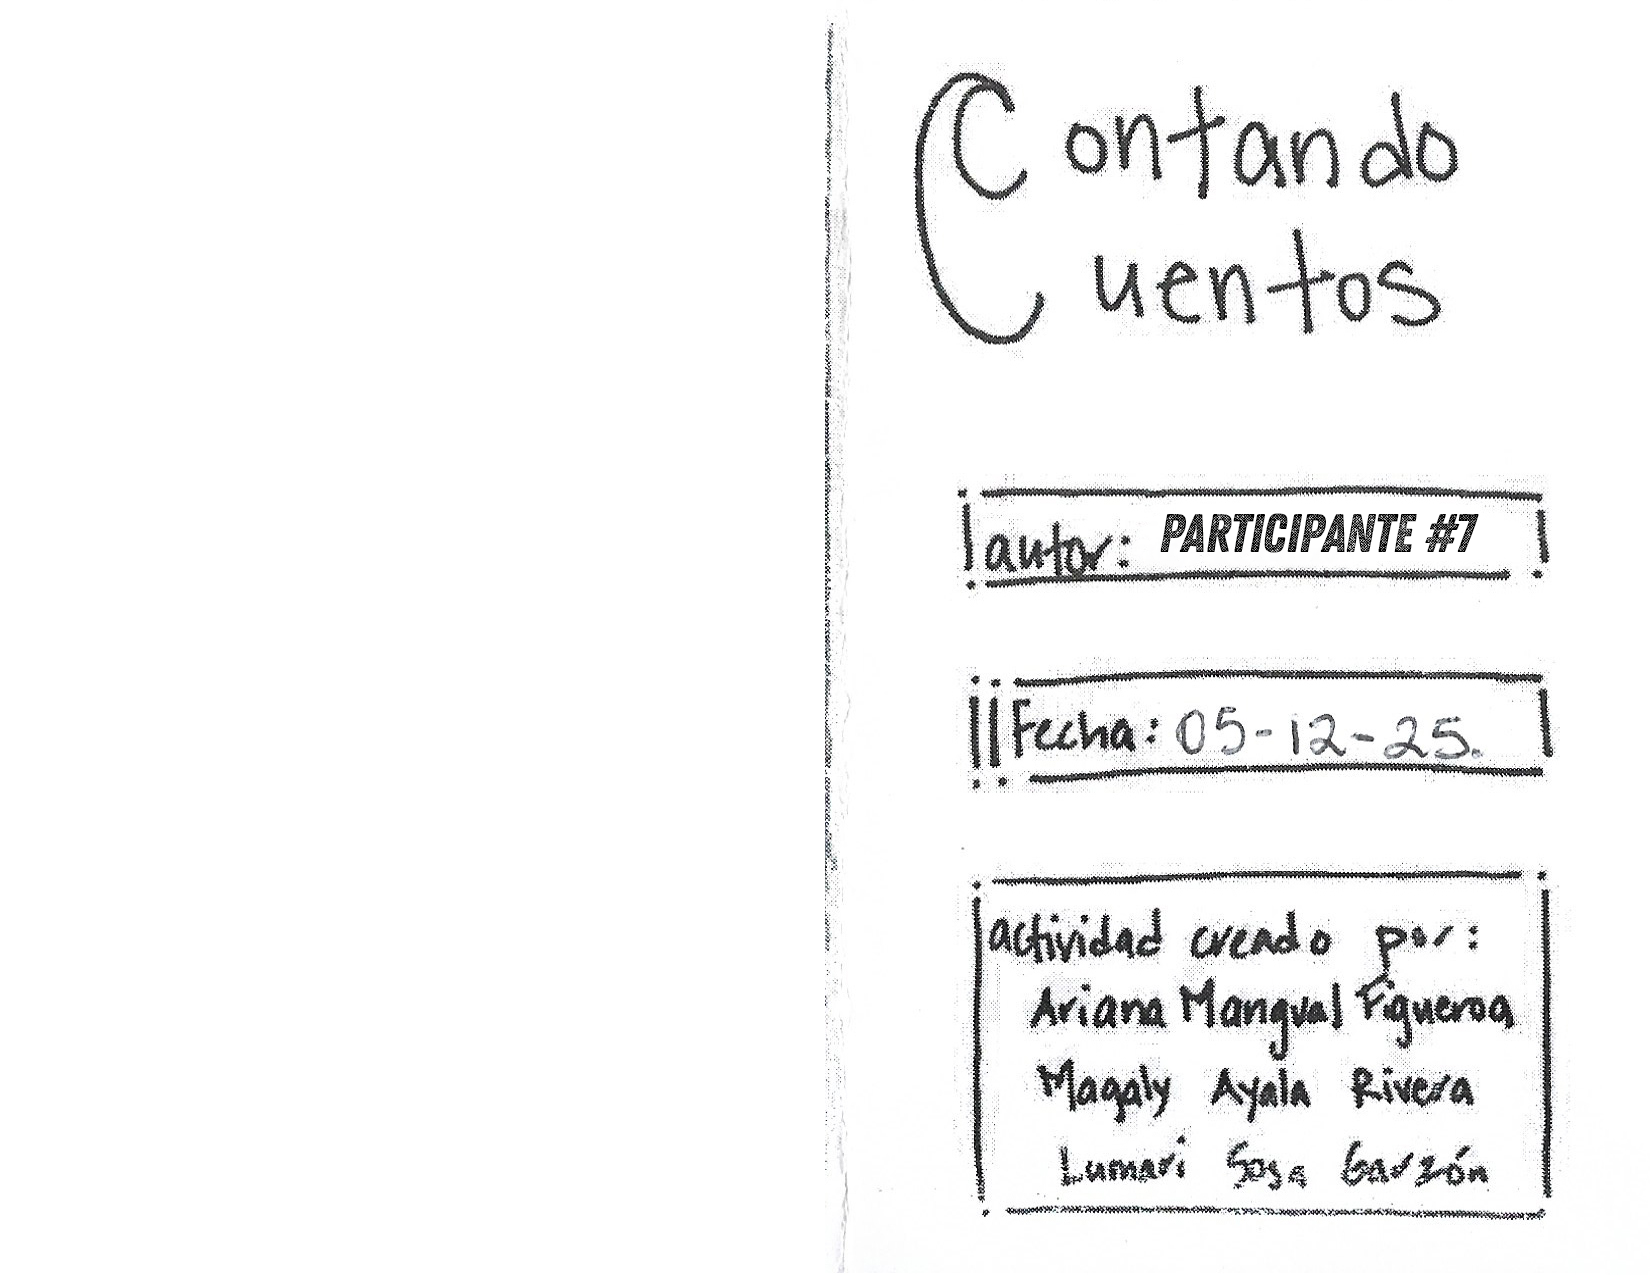 Contando
Cuentos
autor: PARTICIPANTE #7
Fecha: 05-12-25.
actividad creado por:
Ariana Mangual Figueroa
Magaly Ayala Rivera
Lumari Sosa Garzón